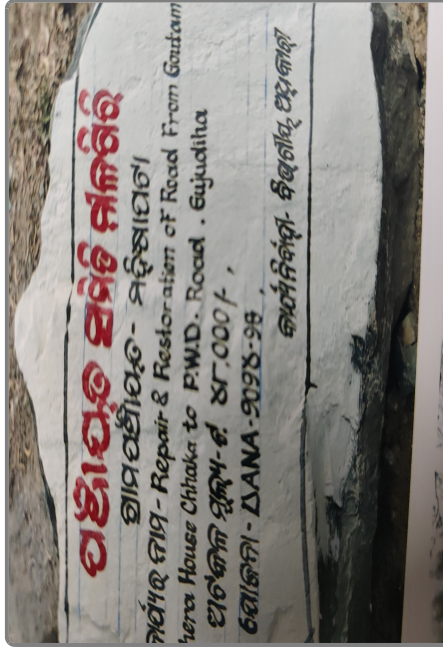 ପଞ୍ଚାୟତ ସମିତି ନୀଳଗିରି
ଗ୍ରାମପଞ୍ଚାୟତ - ମହିଷାପଟା
କାର୍ଯ୍ୟର ନାମ - Repair & Restoration of Road From Goutam
hera House Chhaka to P.W.D. Road. Gujudiha
ଅଟକଳ ମୂଲ୍ୟ - ଟ. ୪୮,000/-,
ଯୋଜନା - DANA - ୨୦୨୪-୨୫,
କାର୍ଯ୍ୟନିର୍ବାହୀ - ବିଭାଗୀୟ ଅଧିକାରୀ